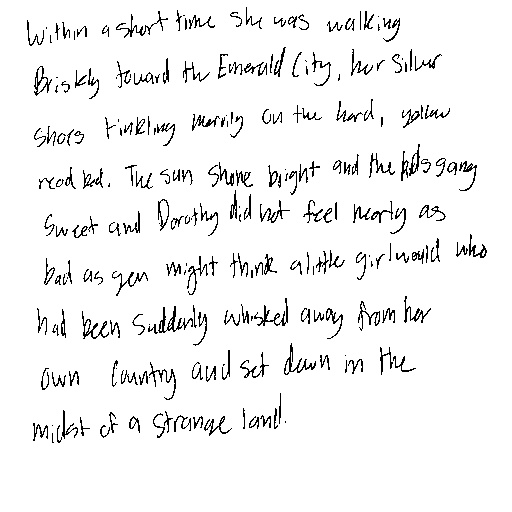 Within a short time she was walking
Briskly toward the Emerald City, her Silver
Shoes tinkling merrily on the hard, yellow
road bed. The sun shone bright and the birds sang
Sweet and Dorothy did not feel nearly as
bad as you might think a little girl would who
had been suddenly whisked away from her
own Country and set down in the
midst of a strange land.